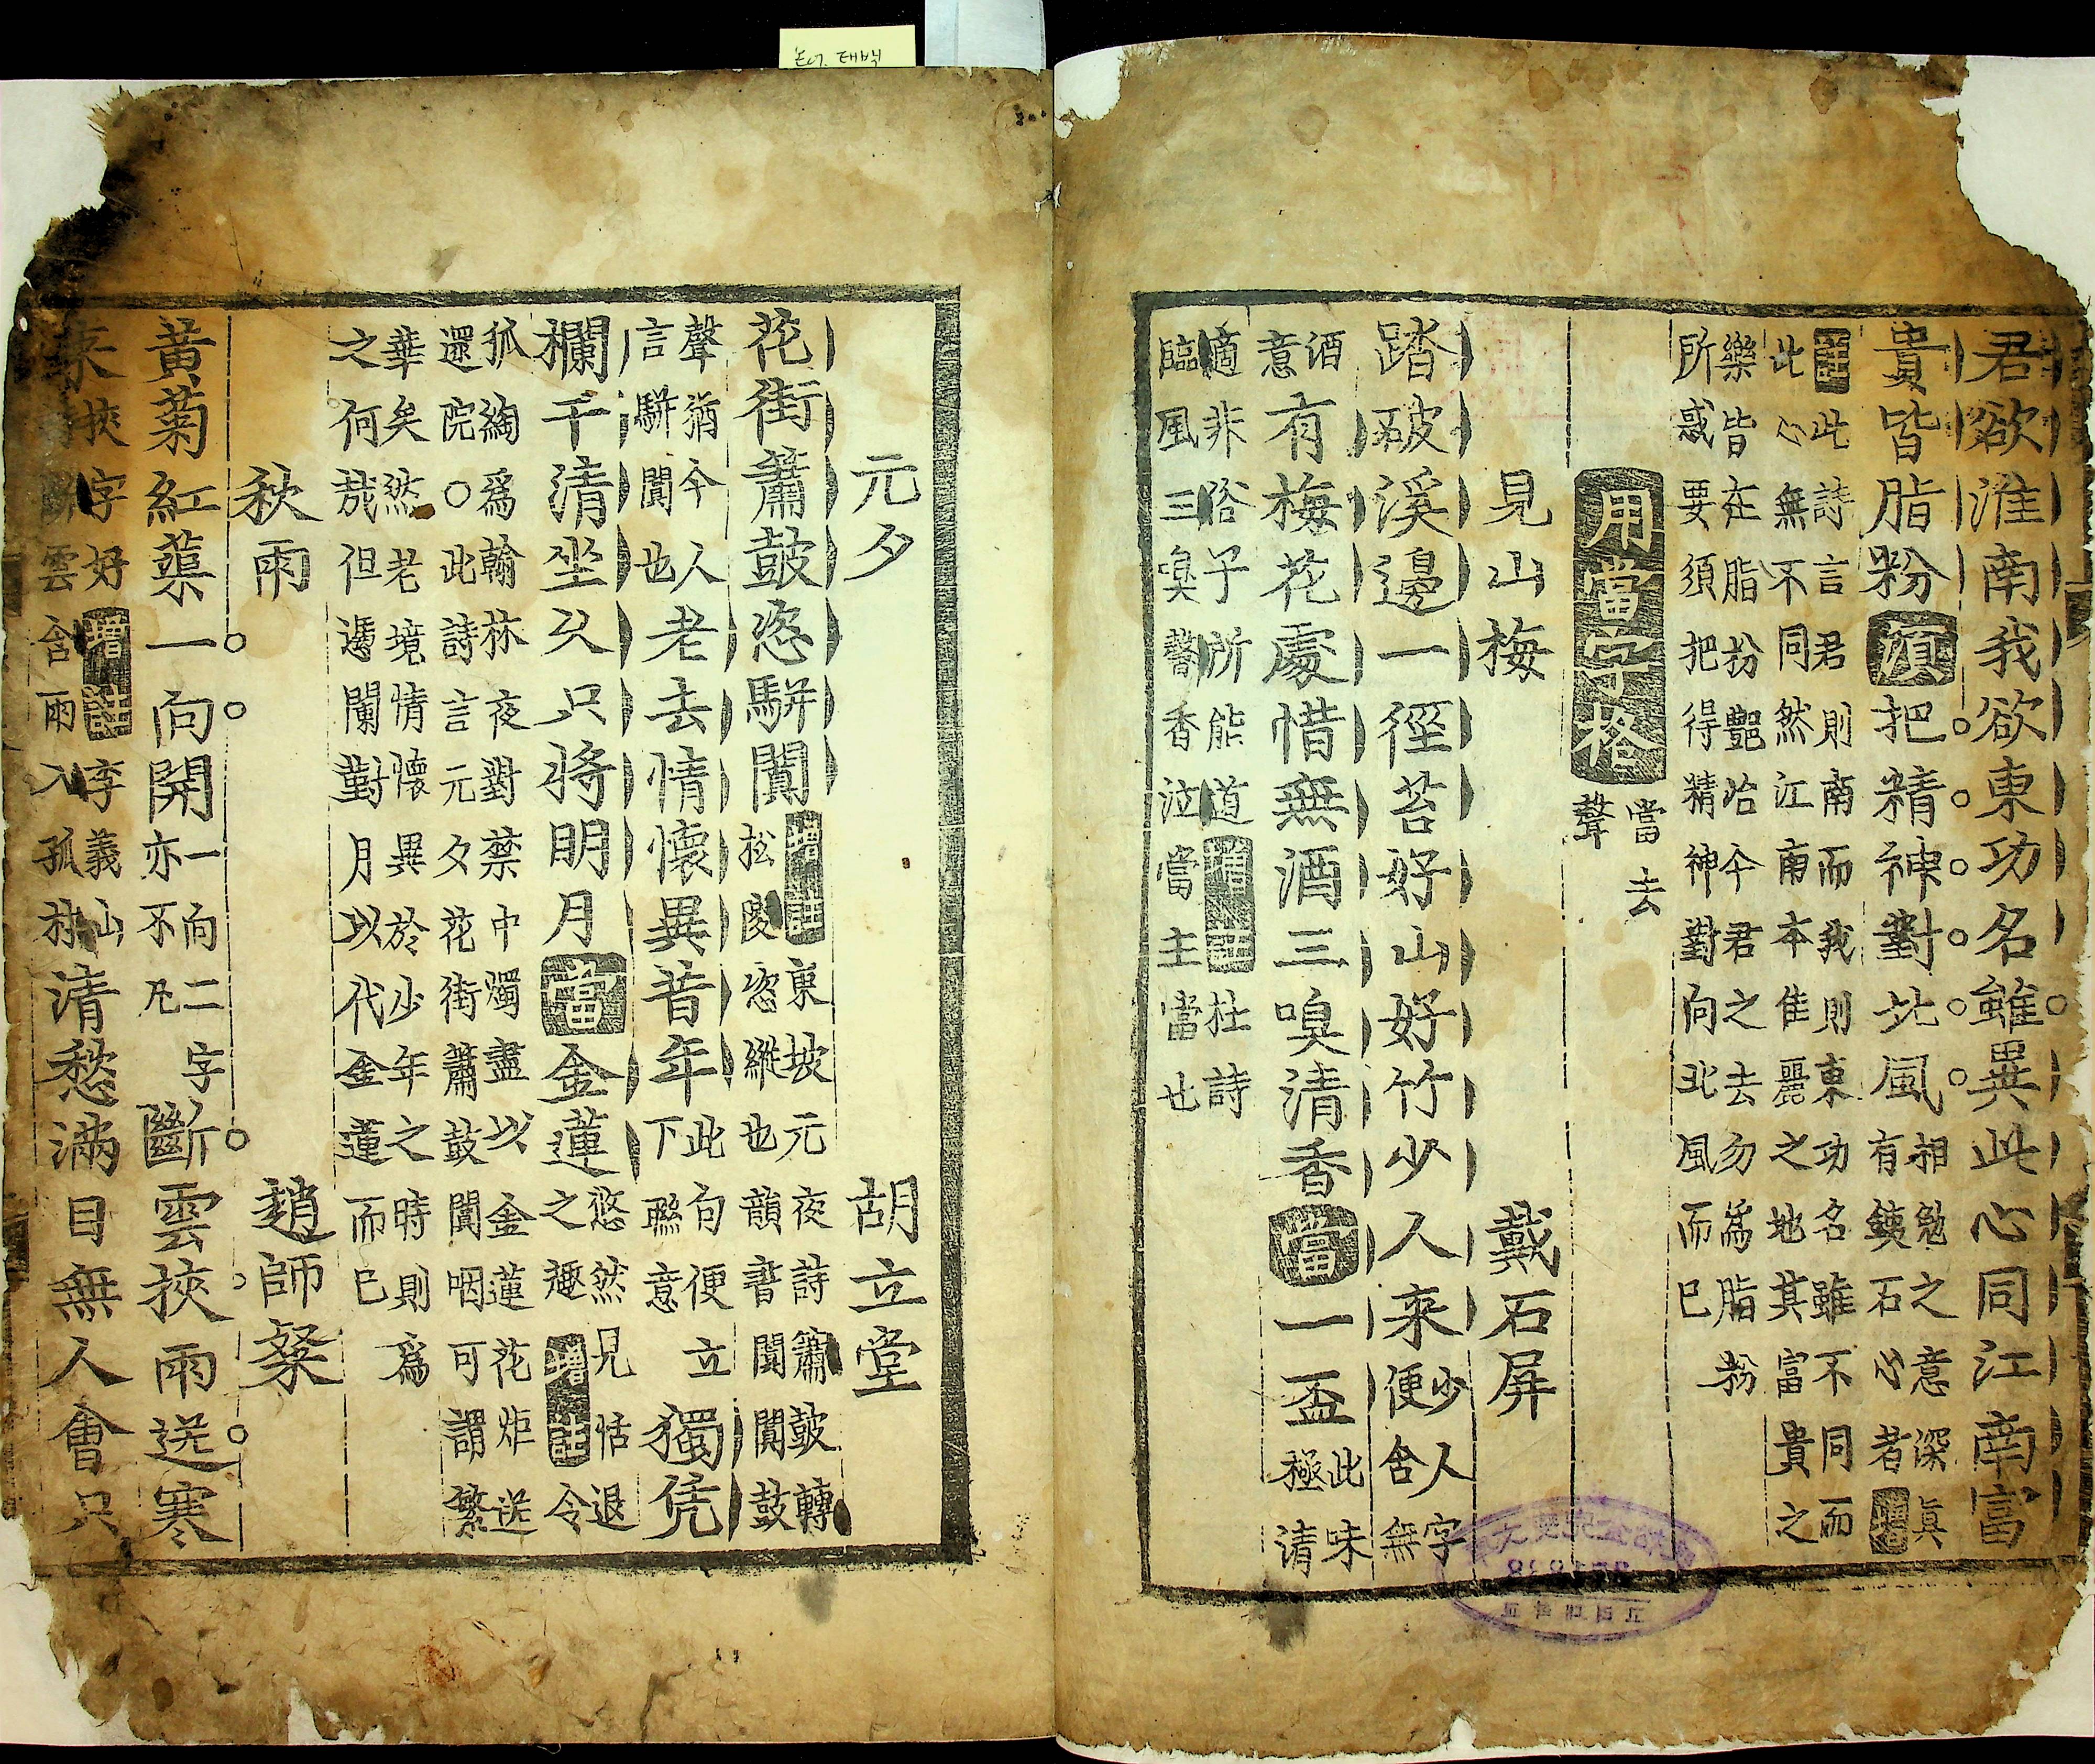 君欲淮南我欲東功名雖異此心同江南富
貴皆脂粉須把精神對北風
相勉之意深真
有鐵石心者增
註此詩言君則南而我則東功名雖不同而
此心無不同然江南本佳麗之地其富貴之
樂皆在脂粉艷冶今君之去勿爲脂粉
所惑要須把得精神對向北風而已
用當字格
當去
聲
見山梅 戴石屏
踏破溪邊一徑苔好山好竹少人来
少人字
便含無
酒
意
有梅花處惜無酒三嗅清香當一盃
此味
極清
適非俗子所能道增註杜詩
臨風三嗅馨香泣當主當也
元夕 胡立堂
花街簫鼓恣騈闐
增註東坡元夜詩簫鼓轉
松陵恣縱也韻書闐闐鼓
聲猶今人
言騈闐也
老去情懷異昔年
此句便立
下聯意
獨凭
欄干清坐久只將明月當金蓮
悠然見恬退
之趣增註令
狐綯爲翰林夜對禁中燭盡以金蓮花炬送
還院○此詩言元夕花街簫鼓闐咽可謂繁
華矣然老境情懷異於少年之時則爲
之何哉但憑闌對月以代金蓮而已
秋雨 趙師粲
黃菊紅蕖一向開
一向二字
亦不凡
斷雲挾雨送寒
来
挾字好增註李義山
斷雲含雨入孤村
清愁滿目無人會只